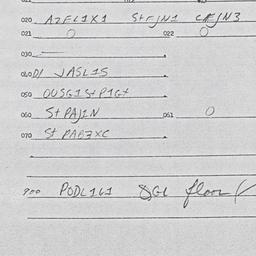 020 AZFL1X1 StFJN1 CFJN3
021 0 022 0
030
040 D/ JASL1S
050 OUSG1StP1GX
060 StPAJ1N 061 0
070 St PAB3XC
900 PODL161 floor